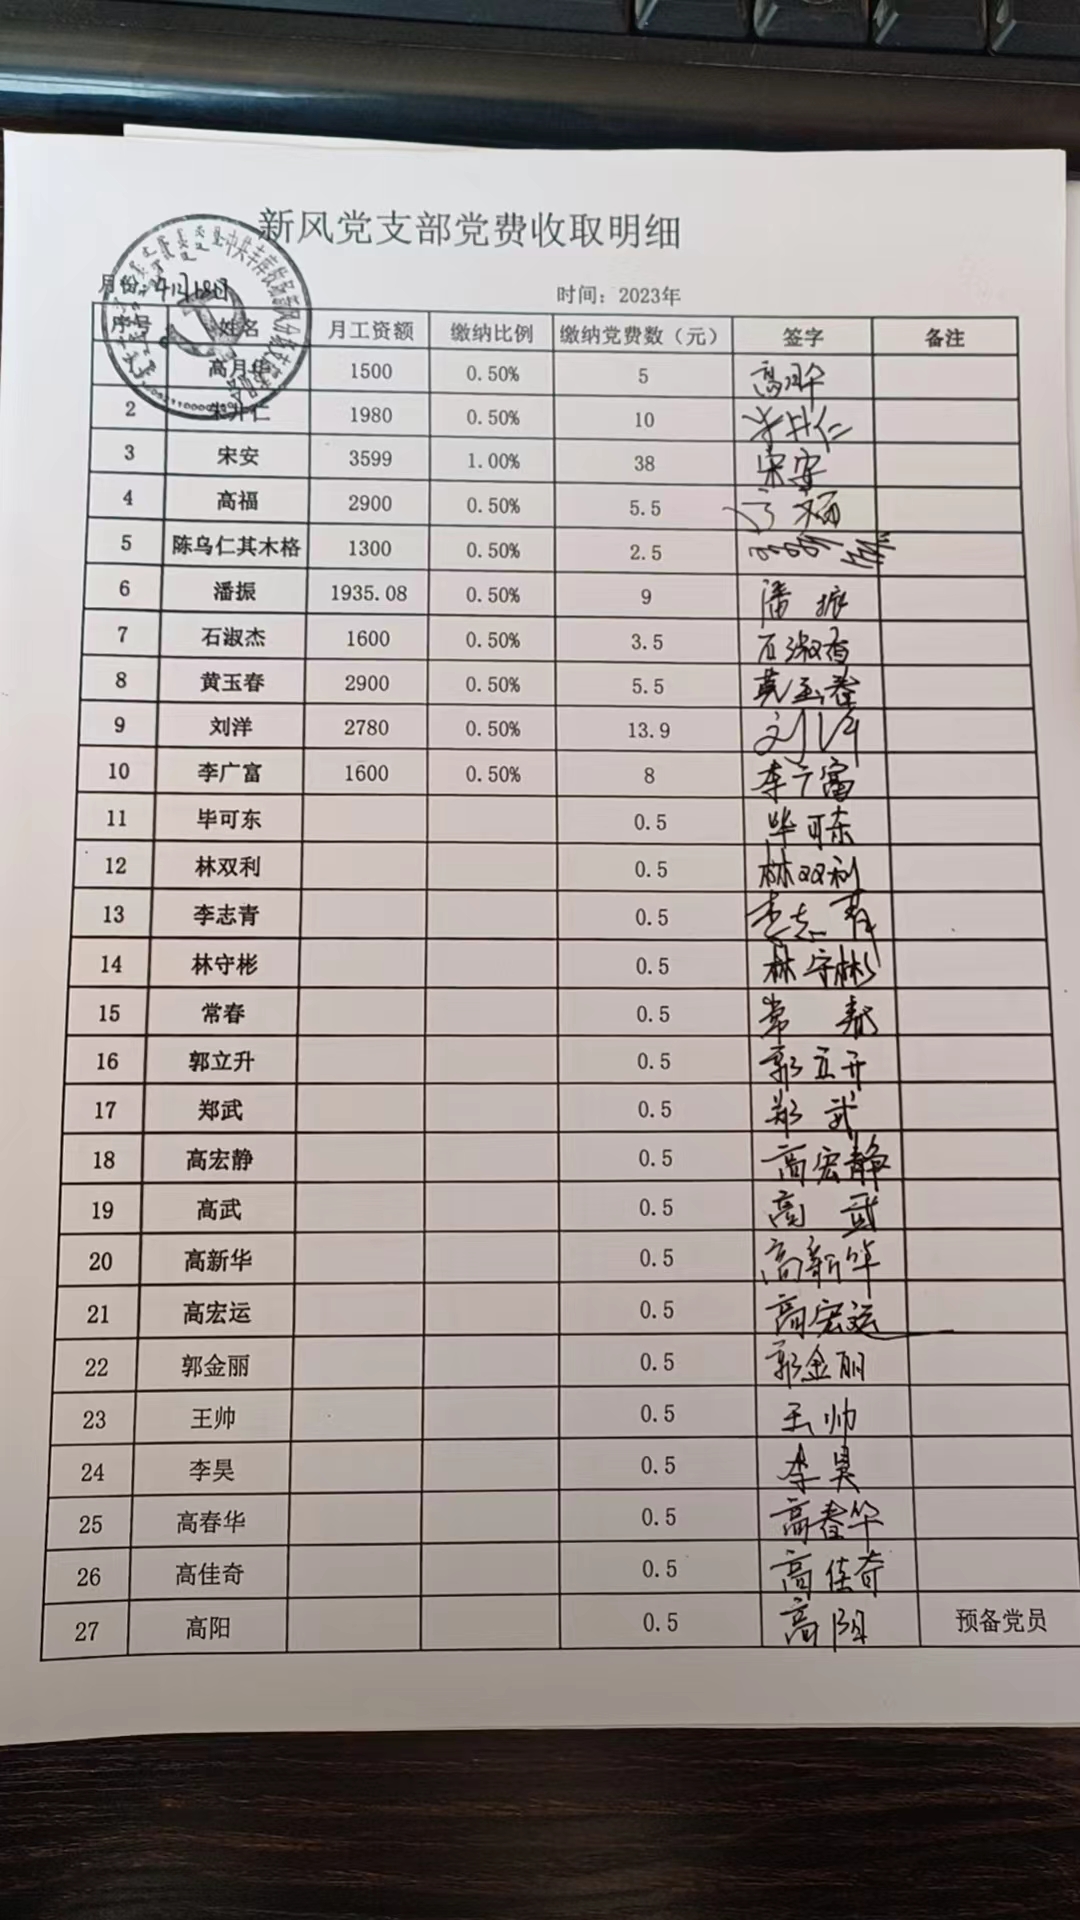 新风党支部党费收取明细
月份：4月18日 时间：2023年
序号 姓名 月工资额 缴纳比例 缴纳党费数（元） 签字 备注
高月华 1500 0.50% 5 高月华
2 朱井仁 1980 0.50% 10 朱井仁
3 宋安 3599 1.00% 38 宋安
4 高福 2900 0.50% 5.5
5 陈乌仁其木格 1300 0.50% 2.5
6 潘振 1935.08 0.50% 9 潘振
7 石淑杰 1600 0.50% 3.5 石淑杰
8 黄玉春 2900 0.50% 5.5 黄玉春
9 刘洋 2780 0.50% 13.9 刘洋
10 李广富 1600 0.50% 8 李广富
11 毕可东 0.5 毕可东
12 林双利 0.5 林双利
13 李志青 0.5 李志青
14 林守彬 0.5 林守彬
15 常春 0.5 常春
16 郭立升 0.5 郭立升
17 郑武 0.5 郑武
18 高宏静 0.5 高宏静
19 高武 0.5 高武
20 高新华 0.5 高新华
21 高宏运 0.5 高宏运
22 郭金丽 0.5 郭金丽
23 王帅 0.5 王帅
24 李昊 0.5 李昊
25 高春华 0.5 高春华
26 高佳奇 0.5 高佳奇
27 高阳 0.5 高阳 预备党员